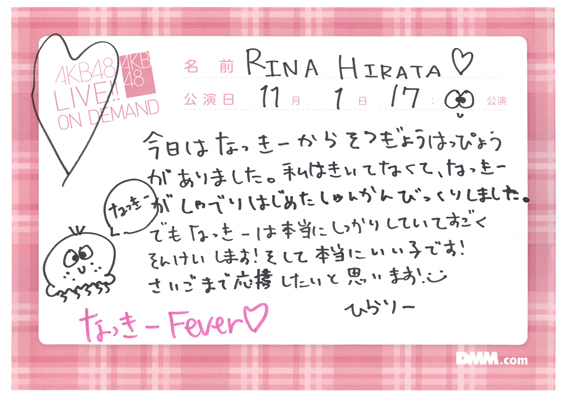 AKB48
LIVE!!
ON DEMAND
AKB
48
名前 RINA HIRATA ♡
公演日 11月1日 17:00 公演
今日は なっきーから そつぎょうはっぴょう
がありました。私はきいてなくて、なっきー
がしゃべりはじめたしゅんかんびっくりしました。
なっきー
でも なっきーは本当にしっかりしていてすごく
そんけいします!そして本当にいい子です!
さいごまで応援したいと思います!
ひらりー
なっきーFever♡
DMM.com